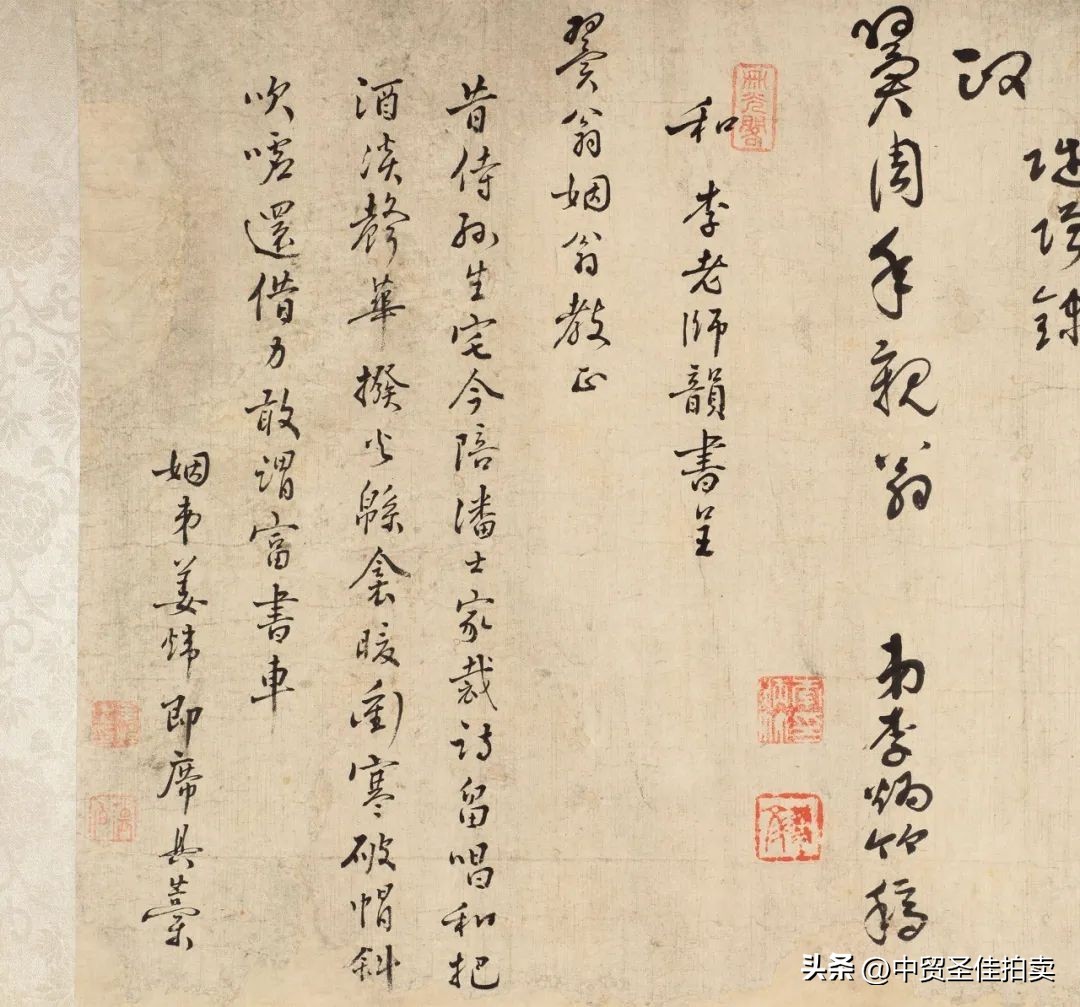 政
翼周年親翁
弟李炳節稿
和李老師韻書呈
翼翁姻翁教正
昔侍孫生宅今陪潘士家裁詩留唱和把
酒淡聲華撥火餘衾暖衝寒破帽斜
吹噓還借力敢謂富書車
姻弟姜煒即席具藁
头条 @中贸圣佳拍卖